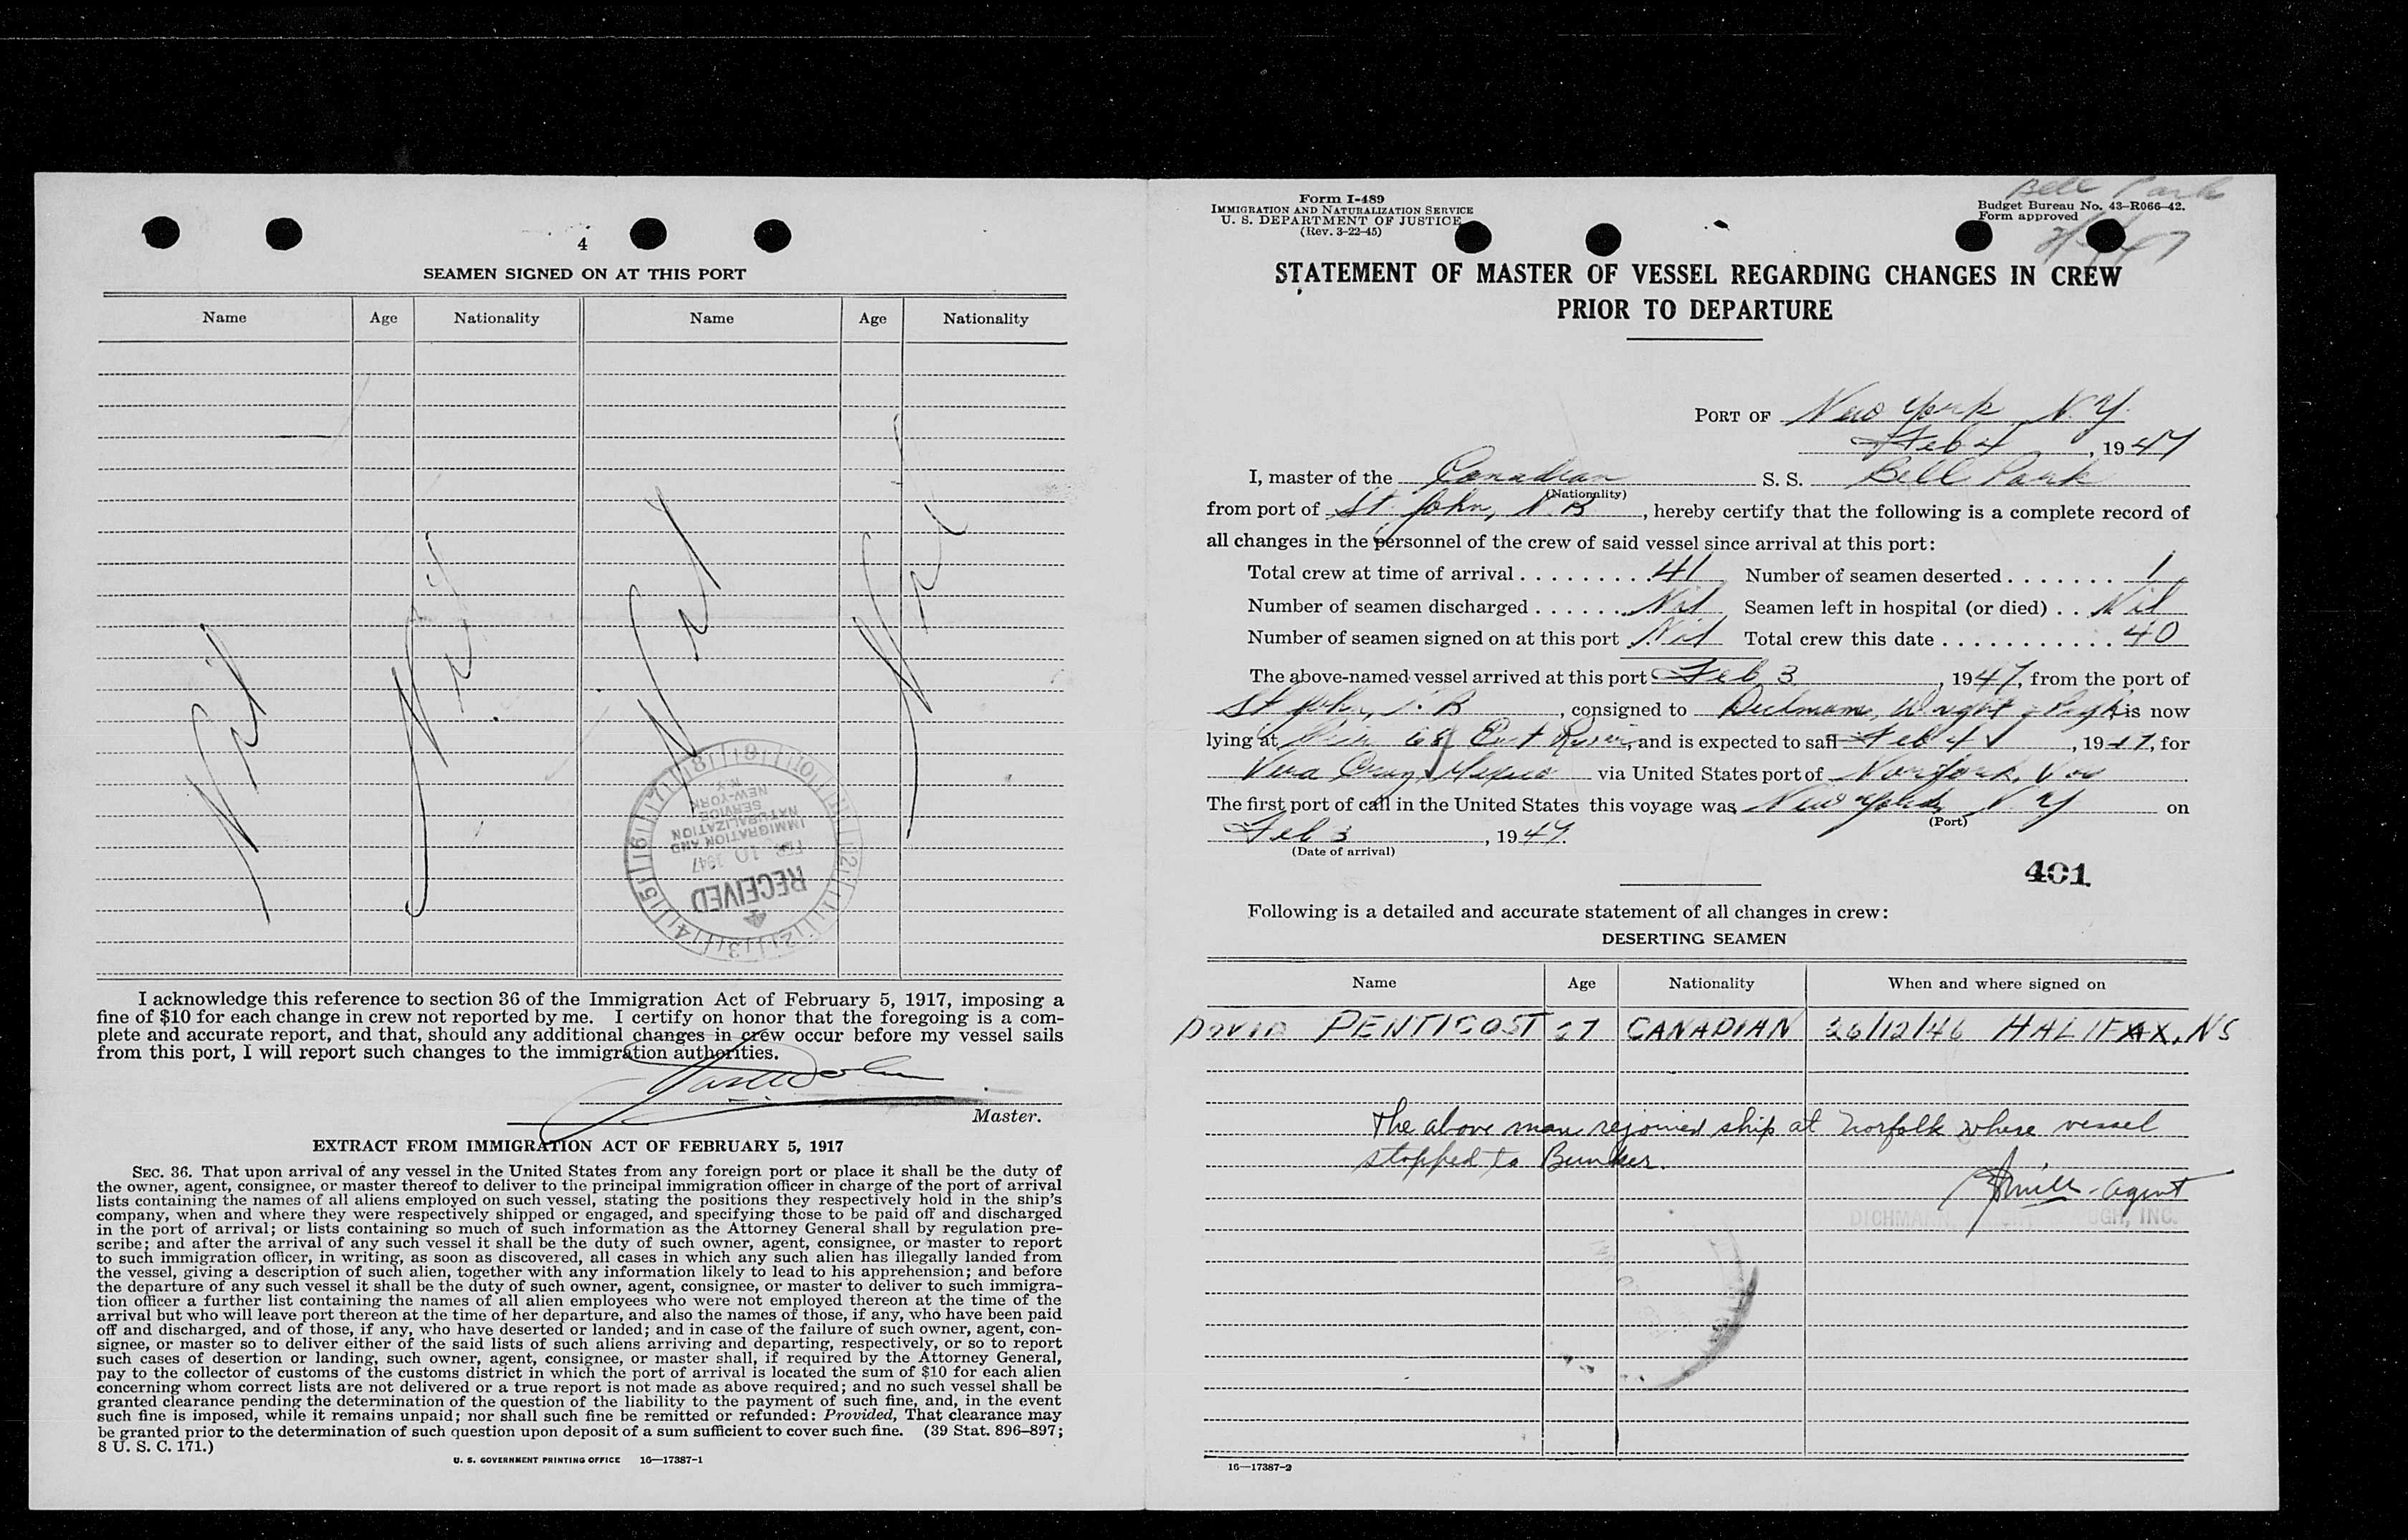 4
SEAMEN SIGNED ON AT THIS PORT
Name Age Nationality Name Age Nationality
Nil Nil Nil Nil
RECEIVED
FEB 10 1947
IMMIGRATION AND
NATURALIZATION
SERVICE
NEW-YORK
N.Y.
I acknowledge this reference to section 36 of the Immigration Act of February 5, 1917, imposing a
fine of $10 for each change in crew not reported by me. I certify on honor that the foregoing is a com-
plete and accurate report, and that, should any additional changes in crew occur before my vessel sails
from this port, I will report such changes to the immigration authorities.
Master.
EXTRACT FROM IMMIGRATION ACT OF FEBRUARY 5, 1917
SEC. 36. That upon arrival of any vessel in the United States from any foreign port or place it shall be the duty of
the owner, agent, consignee, or master thereof to deliver to the principal immigration officer in charge of the port of arrival
lists containing the names of all aliens employed on such vessel, stating the positions they respectively hold in the ship's
company, when and where they were respectively shipped or engaged, and specifying those to be paid off and discharged
in the port of arrival; or lists containing so much of such information as the Attorney General shall by regulation pre-
scribe; and after the arrival of any such vessel it shall be the duty of such owner, agent, consignee, or master to report
to such immigration officer, in writing, as soon as discovered, all cases in which any such alien has illegally landed from
the vessel, giving a description of such alien, together with any information likely to lead to his apprehension; and before
the departure of any such vessel it shall be the duty of such owner, agent, consignee, or master to deliver to such immigra-
tion officer a further list containing the names of all alien employees who were not employed thereon at the time of the
arrival but who will leave port thereon at the time of her departure, and also the names of those, if any, who have been paid
off and discharged, and of those, if any, who have deserted or landed; and in case of the failure of such owner, agent, con-
signee, or master so to deliver either of the said lists of such aliens arriving and departing, respectively, or so to report
such cases of desertion or landing, such owner, agent, consignee, or master shall, if required by the Attorney General,
pay to the collector of customs of the customs district in which the port of arrival is located the sum of $10 for each alien
concerning whom correct lists are not delivered or a true report is not made as above required; and no such vessel shall be
granted clearance pending the determination of the question of the liability to the payment of such fine, and, in the event
such fine is imposed, while it remains unpaid; nor shall such fine be remitted or refunded: Provided, That clearance may
be granted prior to the determination of such question upon deposit of a sum sufficient to cover such fine. (39 Stat. 896–897;
8 U. S. C. 171.)
U. S. GOVERNMENT PRINTING OFFICE 16—17387-1
Bell Park
Form I-489
IMMIGRATION AND NATURALIZATION SERVICE
U. S. DEPARTMENT OF JUSTICE
(Rev. 3-22-45)
Budget Bureau No. 43-R066-42.
Form approved
STATEMENT OF MASTER OF VESSEL REGARDING CHANGES IN CREW
PRIOR TO DEPARTURE
PORT OF New York N.Y.
Feb 4, 1947
I, master of the Canadian S. S. Bell Park
(Nationality)
from port of St. John, N.B, hereby certify that the following is a complete record of
all changes in the personnel of the crew of said vessel since arrival at this port:
Total crew at time of arrival 41 Number of seamen deserted 1
Number of seamen discharged Nil Seamen left in hospital (or died) Nil
Number of seamen signed on at this port Nil Total crew this date 40
The above-named vessel arrived at this port Feb 3, 1947, from the port of
St John, N.B, consigned to Dichmann, Wright & Pugh is now
lying at Pier 68 East River, and is expected to sail Feb 4, 1947, for
Vera Cruz, Mexico via United States port of Norfolk, Va
The first port of call in the United States this voyage was New York, N.Y on
(Port)
Feb 3, 1947.
(Date of arrival)
401
Following is a detailed and accurate statement of all changes in crew:
DESERTING SEAMEN
Name Age Nationality When and where signed on
DAVID PENTICOST 27 CANADIAN 26/12/46 HALIFAX, NS
The above man rejoined ship at Norfolk where vessel
stopped to Bunker.
agent
DICHMANN, WRIGHT & PUGH, INC.
16—17387-2